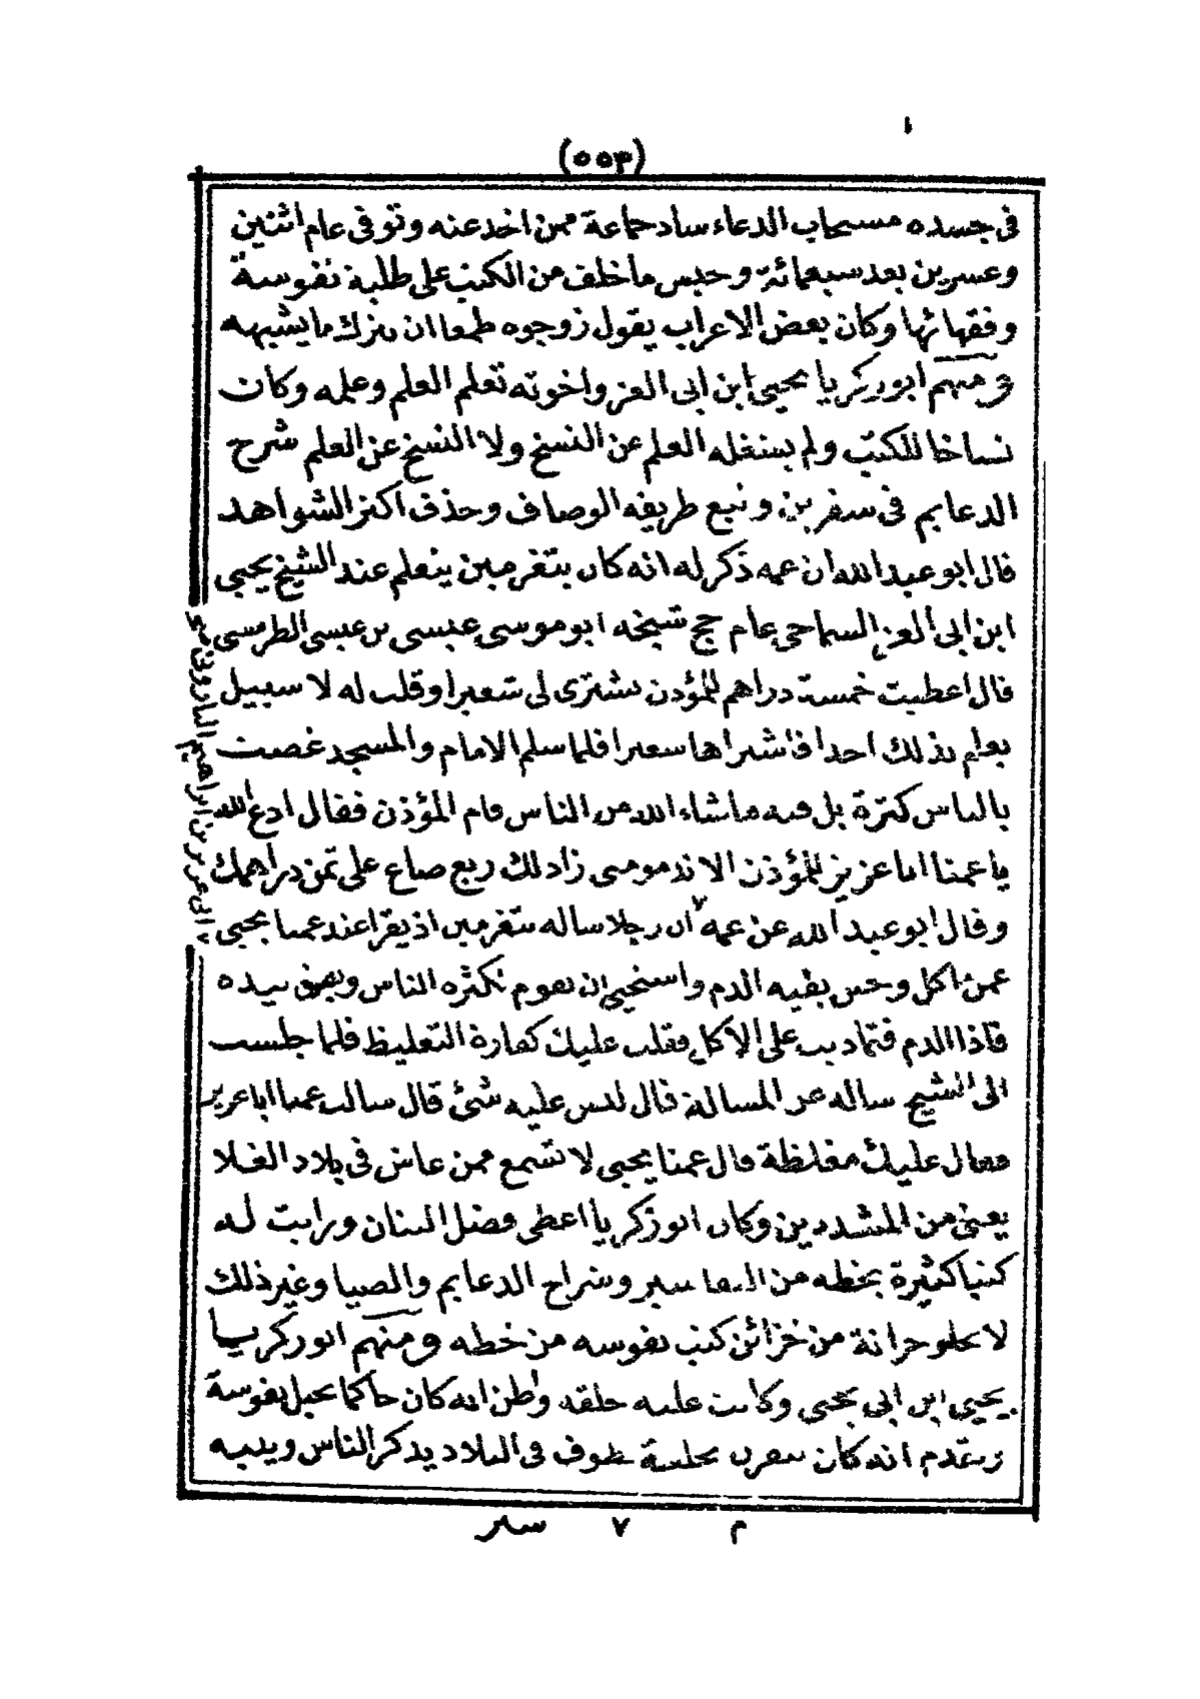 (٥٥٣)
فى جسده مستجاب الدعاء ساد جماعة ممن اخذ عنه وتوفى عام اثنين
وعسرين بعد سبعمائة وحبس ما خلف من الكتب على طلبة نفوسة
وفقهائها وكان بعض الاعراب يقول زوجوه طمعا ان يترك ما يشبهه
ومنهم ابو زكريا يحيى ابن ابى العز واخوته تعلم العلم وعلمه وكان
نساخا للكتب ولم يشغله العلم عن النسخ ولا النسخ عن العلم شرح
الدعايم فى سفرين وتبع طريقة الوصاف وحذف اكثر الشواهد
قال ابو عبد الله ان عمه ذكر له انه كان بتغرمين يتعلم عند الشيخ يحيى
ابن ابى العز السماحى عام حج شيخه ابو موسى عيسى بن عيسى الطرميسى
قال اعطيت خمسة دراهم للمؤذن يشترى لى شعيرا وقلت له لا سبيل
يعلم بذلك احدا فاشتراها شعيرا فلما سلم الامام والمسجد غصت
بالناس كثرة بل فيه ما شاء الله من الناس قام المؤذن فقال ادع الله
يا عمنا ابا عزيز للمؤذن الا ندمومى زاد لك ربع صاع على ثمن دراهمك
وقال ابو عبد الله عن عمه ان رجلا ساله بتغرمين اذ يقرا عند عمنا يحيى
عمن اكل وحس بقيه الدم واستحيى ان يقوم لكثرة الناس وبصق بيده
فاذا الدم فتماديت على الاكل فقلت عليك كفارة التغليظ فلما جلست
الى الشيخ ساله عن المسالة قال ليس عليه شئ قال سالت عمنا ابا عزيز
فقال عليك مغلظة قال عمنا يحيى لا تسمع ممن عاش فى بلاد الغلا
يعنى من المشددين وكان ابو زكريا اعطى فضل البنان ورايت له
كتبا كثيرة بخطه من التفاسير وشراح الدعايم والضيا وغير ذلك
لا تخلو خزانة من خزائن كتب نفوسه من خطه ومنهم ابو زكريا
يحيى ابن ابى يحيى وكانت عليه حلقه واظن انه كان حاكما بجبل نفوسة
وتقدم انه كان يطوف فى البلاد يذكر الناس وينبه
م ٧ سير